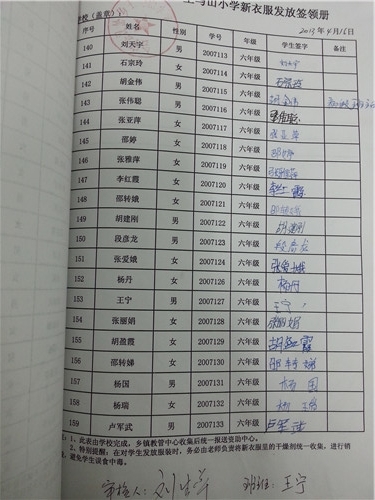 马山小学新衣服发放签领册
学校（盖章）： 2013年4月16日
序号 姓名 性别 学号 年级 学生签名 备注
140 刘天宇 男 2007113 六年级 刘天宇
141 石宗玲 女 2007114 六年级 石宗玲
142 胡金伟 男 2007115 六年级 胡金伟
143 张伟聪 男 2007116 六年级
144 张亚萍 女 2007117 六年级 张亚萍
145 邵婷 女 2007118 六年级 邵婷
146 张雅萍 女 2007119 六年级 张雅萍
147 李红霞 女 2007120 六年级 李红霞
148 邵转娥 女 2007121 六年级 邵转娥
149 胡建刚 男 2007122 六年级 胡建刚
150 段彦龙 男 2007123 六年级 段彦龙
151 张爱娥 女 2007124 六年级 张爱娥
152 杨丹 女 2007126 六年级 杨丹
153 王宁 男 2007127 六年级 王宁
154 张丽娟 女 2007128 六年级 张丽娟
155 胡盈霞 女 2007129 六年级 胡盈霞
156 邵转娣 女 2007130 六年级 邵转娣
157 杨国 男 2007131 六年级 杨国
158 杨瑞 女 2007132 六年级 杨瑞
159 卢军武 男 2007133 六年级 卢军武
1、此表由学校完成，乡镇教管中心收集后统一报送资助中心。
2、特别提醒：在对学生发放服装时，务必由老师负责将新衣服里的干燥剂统一收集，进行销
，避免学生误食中毒。
审核人： 班班：王宁